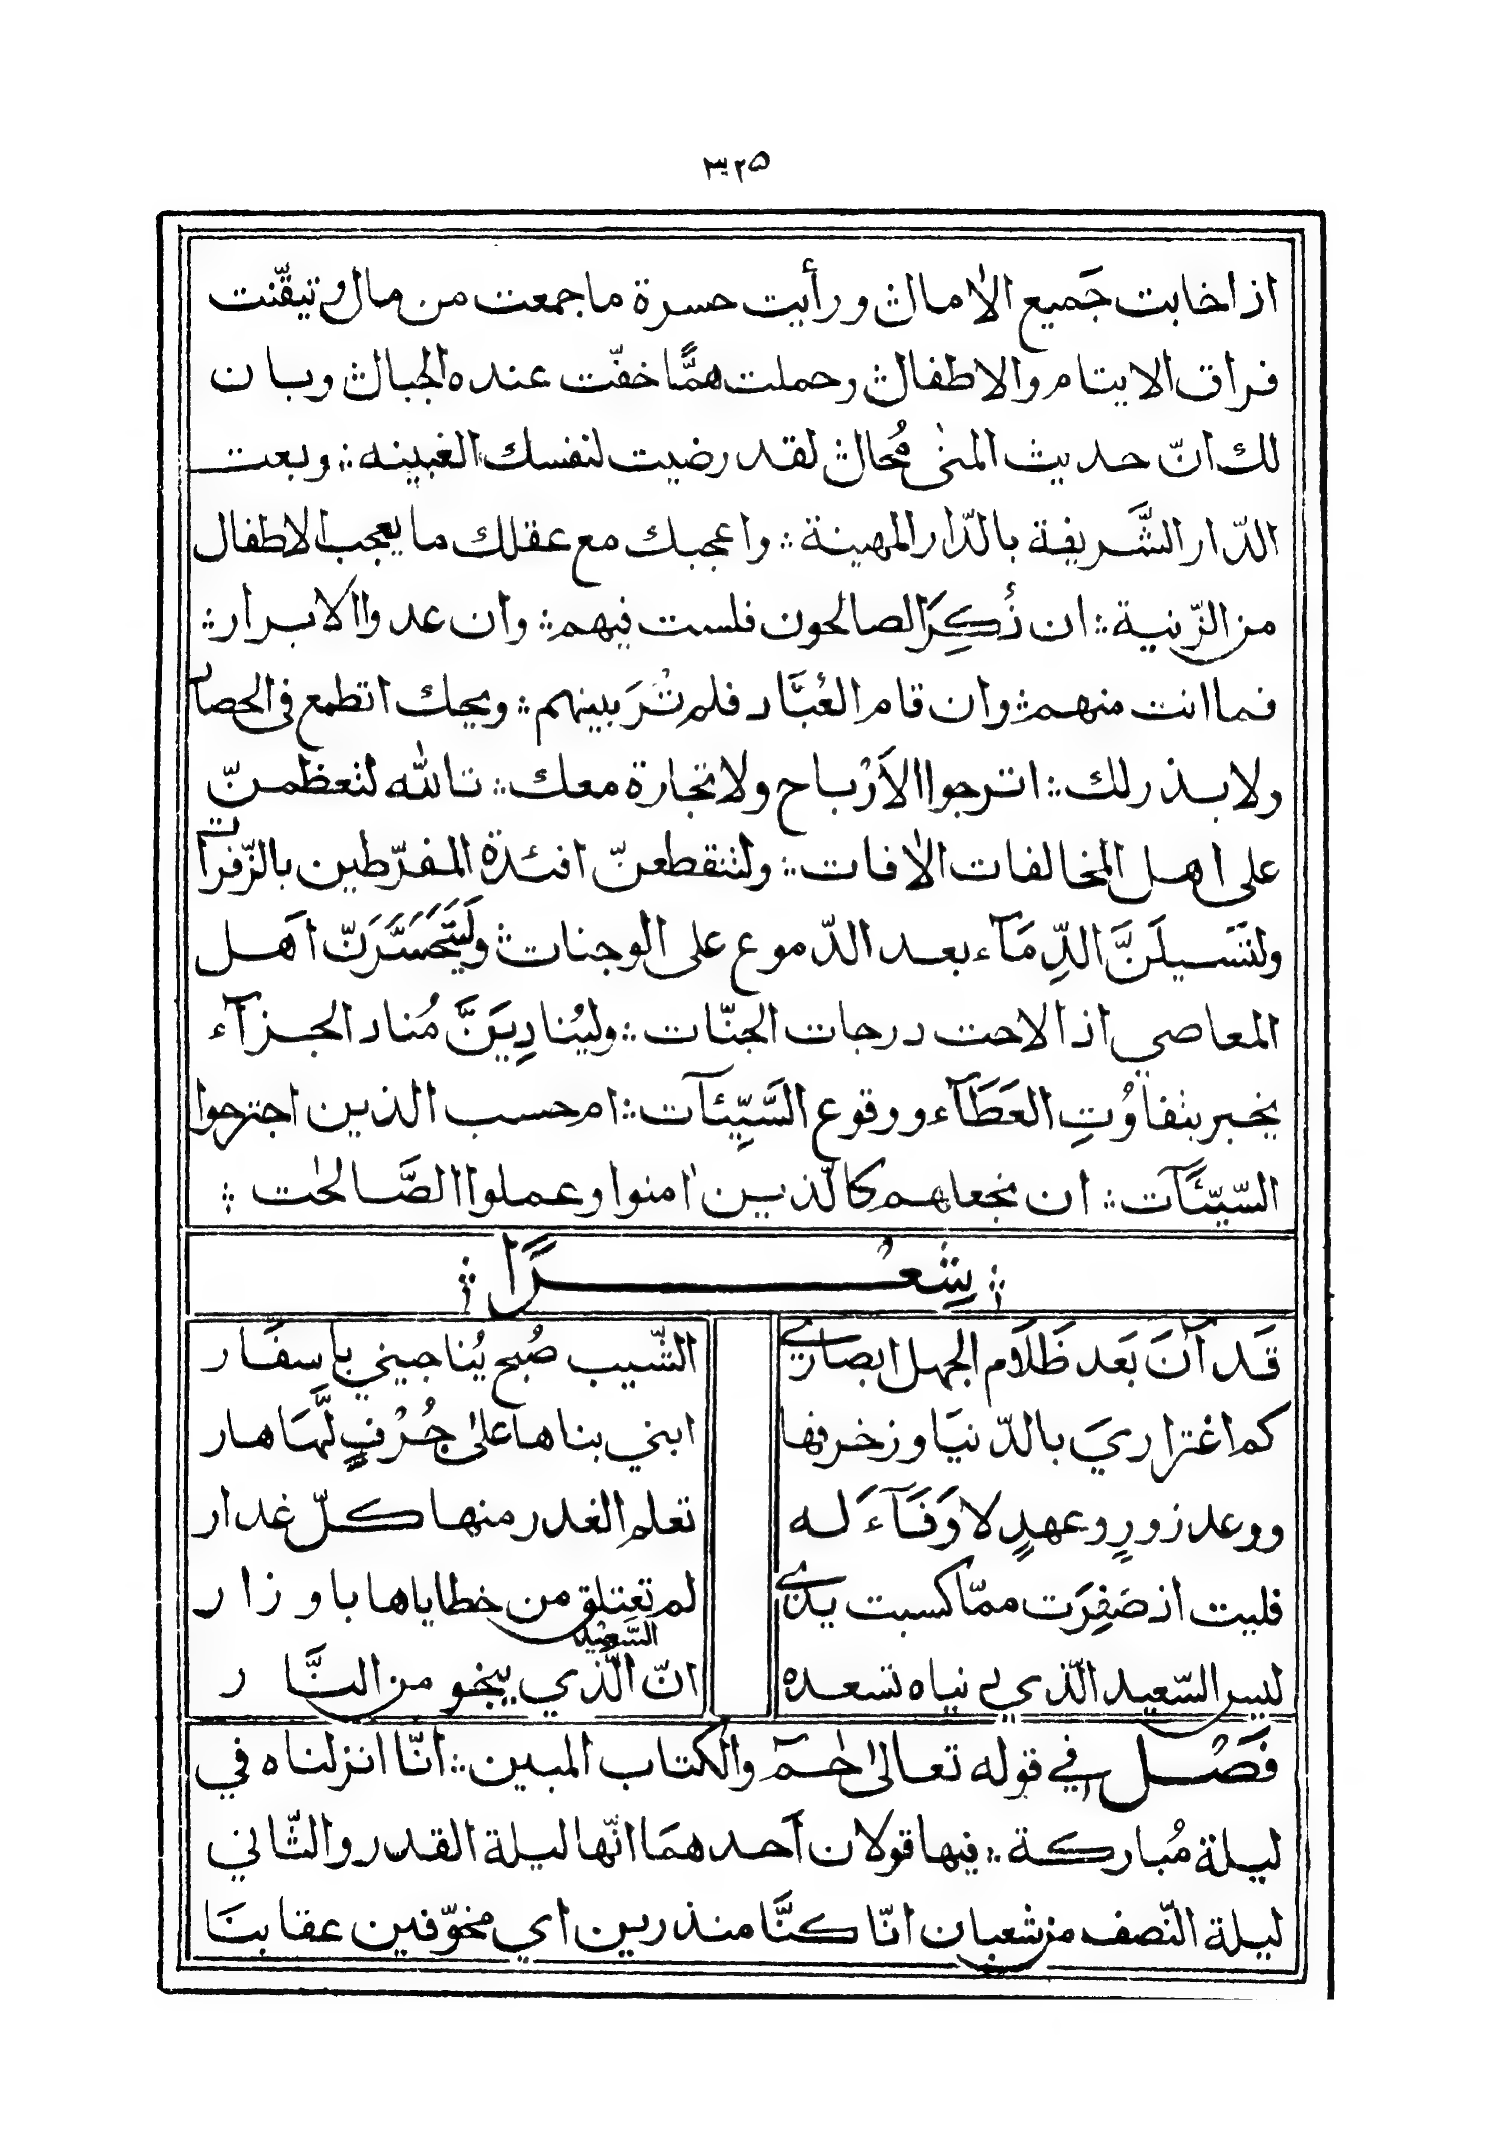 ٣٢٥
اذا خابت جَميع الاٰمال؞ ورأيت حسرة ما جمعت من مال؞ وتيقّنت
فراق الايتام والاطفال؞ وحملت همًّا خفّت عنده الجبال؞ وبان
لك انّ حديث المنىٰ مُحال؞ لقد رضيت لنفسك الغبينه؞ وبعت
الدّار الشَّريفة بالدّار المهينة؞ واعجبك مع عقلك ما يعجب الاطفال
من الزّينية؞ ان ذُكِرَ الصالحون فلست فيهم؞ وان عدوا الابرار؞
فما انت منهم؞ وان قام العُبَّاد فلم تُرَ بينهم؞ ويحك اتطمع في الحصاد
ولا بذر لك؞ اترجوا الاَرْباح ولا تجارة معك؞ تالله لتعظمنّ
على اهل المخالفات الاٰفات؞ ولتتقطعنّ افئدة المفرّطين بالزّفرات
ولتَسيلَنَّ الدِّمَآء بعد الدّموع على الوجنات؞ وَلَيَتَحَسَّرَنّ اَهل
المعاصي اذا لاحت درجات الجنّات؞ وليُنادِيَنَّ مُناد الجزآء
يخبر بتفاوُتِ العَطَآء ووقوع السَّيِّئآت؞ ام حسب الذين اجترحوا
السّيّئَآت؞ ان نجعلهم كالّذين اٰمنوا وعملوا الصَّالحٰت؞
؞ شِعْرًا ؞
قَد آنَ بَعد ظَلَام الجهل ابصاري الشّيب صُبح يُناجيني بإسفَار
كم اغْتراريَ بالدّنيَا وزخرفها ابني بناها علىٰ جُرْفٍ لَّهَا هار
ووعد زورٍ وعهدٍ لا وَفَآءَ لَه تعلم الغدر منها كلّ غدار
فليت اذ صَفِرَت ممّا كسبت يدي لم تعتلق من خطاياها باوزار
ليس السّعيد الّذي دنياه تسعده انّ السّعيد الّذي ينجو من النَّار
فَصْل في قوله تعالىٰ حٰمٓ والكتاب المبين؞ انّا انزلناه في
ليلة مُباركة؞ فيها قولان اَحدهمَا انّها ليلة القدر والثّاني
ليلة النّصف من شعبان انّا كنَّا منذرين اي مخوّفين عقابنَا